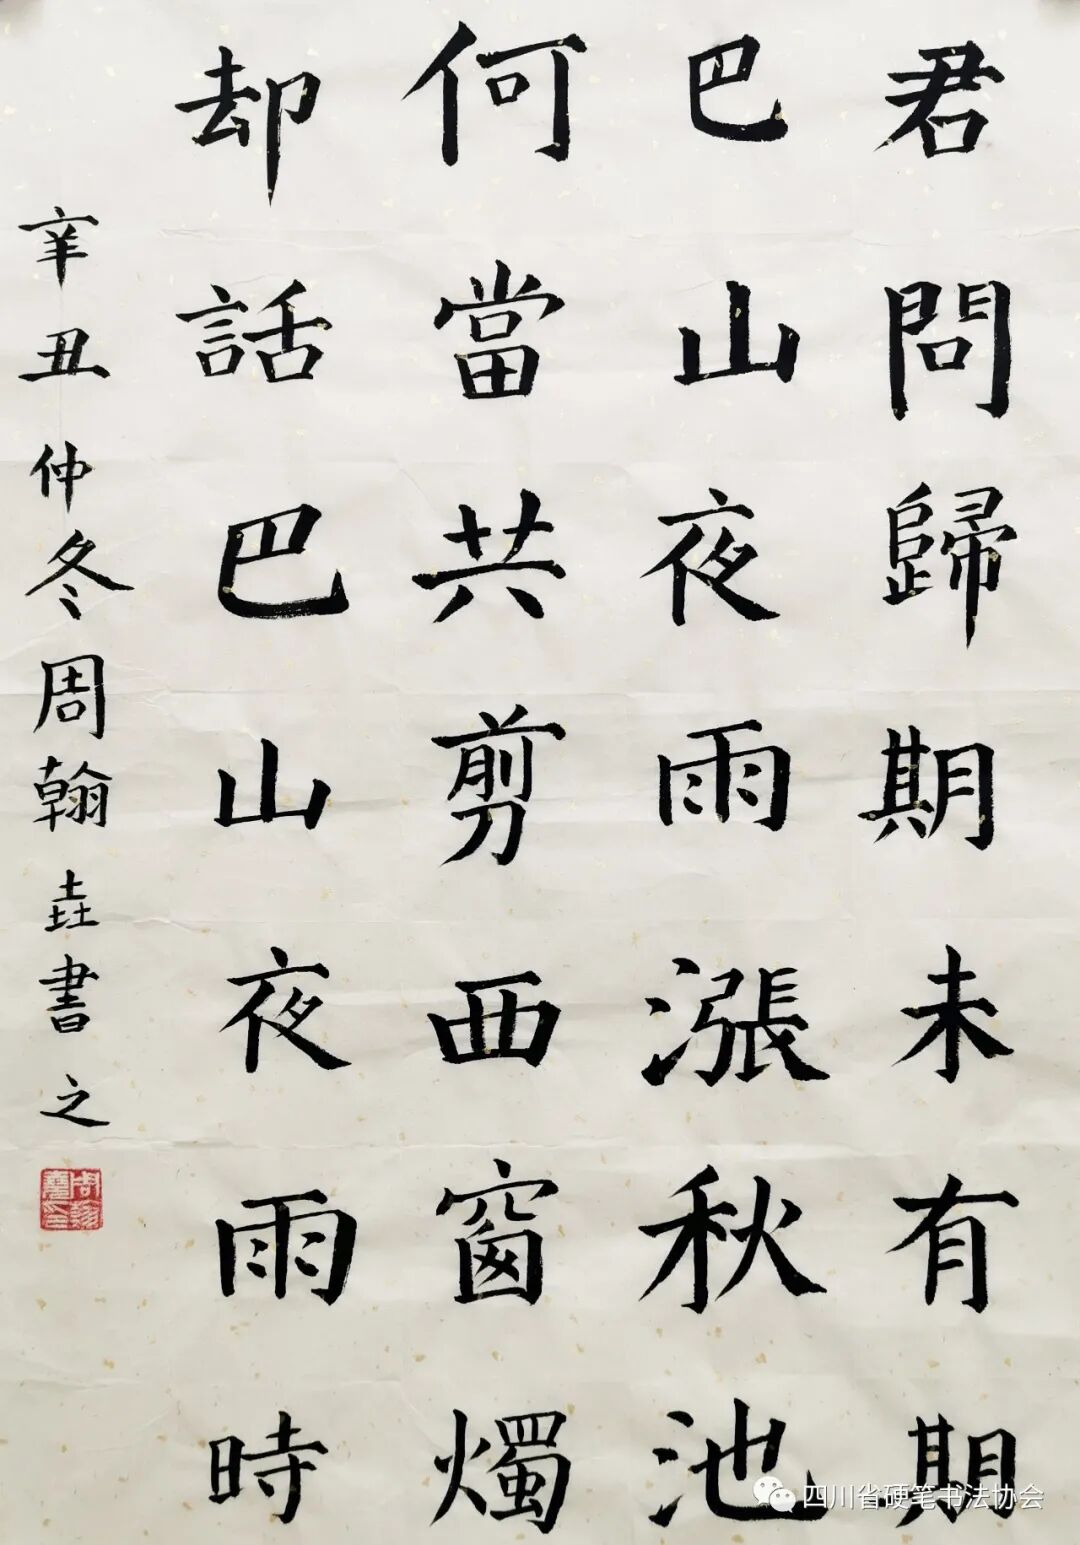 君問歸期未有期
巴山夜雨漲秋池
何當共剪西窗燭
却話巴山夜雨時
辛丑仲冬周翰垚書之
四川省硬笔书法协会